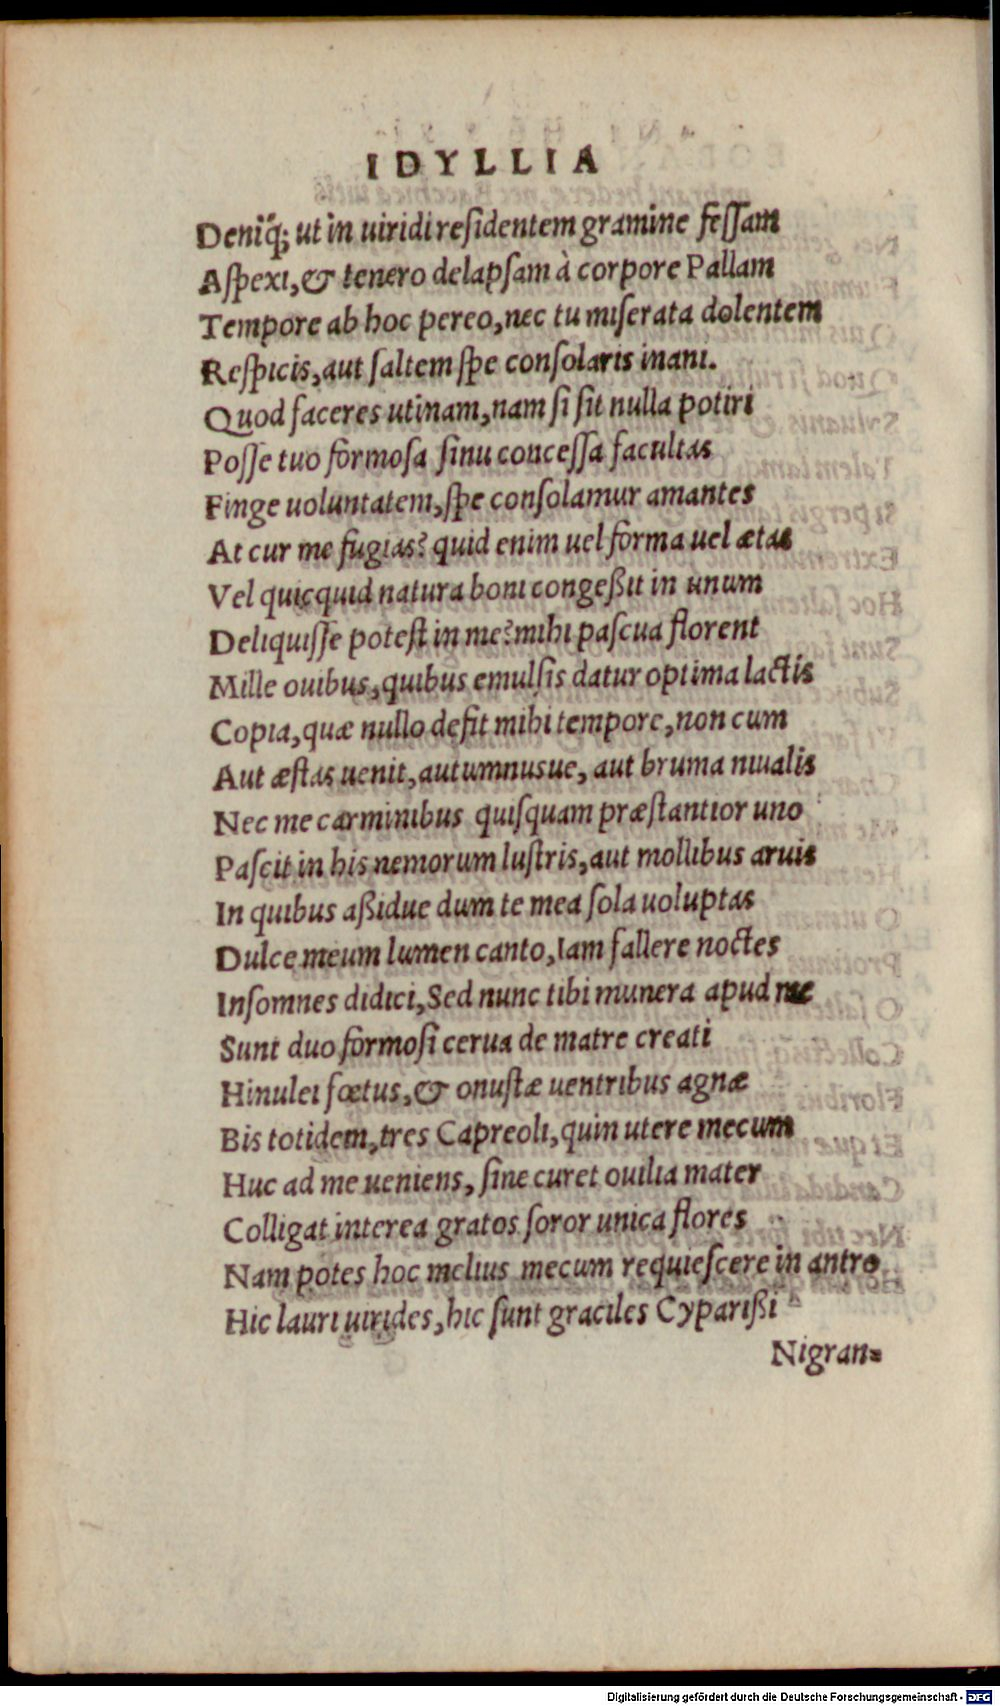 IDYLLIA
Deniq́; ut in uiridi residentem gramine fessam
Aspexi, & tenero delapsam à corpore Pallam
Tempore ab hoc pereo, nec tu miserata dolentem
Respicis, aut saltem spe consolaris inani.
Quod faceres utinam, nam si sit nulla potiri
Posse tuo formosa sinu concessa facultas
Finge uoluntatem, spe consolamur amantes
At cur me fugias? quid enim uel forma uel ætas
Vel quicquid natura boni congeßit in unum
Deliquisse potest in me? mihi pascua florent
Mille ouibus, quibus emulsis datur optima lactis
Copia, quæ nullo defit mihi tempore, non cum
Aut æstas uenit, autumnusue, aut bruma niualis
Nec me carminibus quisquam præstantior uno
Pascit in his nemorum lustris, aut mollibus aruis
In quibus aßidue dum te mea sola uoluptas
Dulce meum lumen canto, Iam fallere noctes
Insomnes didici, Sed nunc tibi munera apud me
Sunt duo formosi cerua de matre creati
Hinulei fœtus, & onustæ uentribus agnæ
Bis totidem, tres Capreoli, quin utere mecum
Huc ad me ueniens, sine curet ouilia mater
Colligat interea gratos soror unica flores
Nam potes hoc melius mecum requiescere in antro
Hic lauri uirides, hic sunt graciles Cyparißi
Nigran=
Digitalisierung gefördert durch die Deutsche Forschungsgemeinschaft - DFG